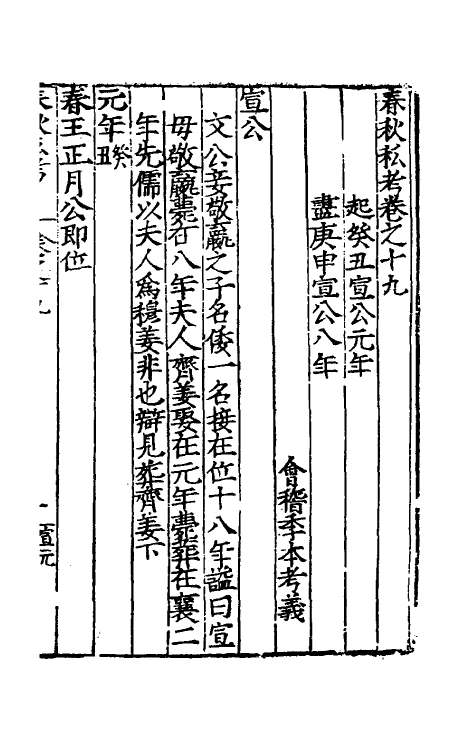 春秋私考卷之十九
起癸丑宣公元年
盡庚申宣公八年
會稽季本考義
宣公
文公妾敬嬴之子名倭一名接在位十八年謚曰宣
母敬嬴薨在八年夫人齊姜娶在元年薨葬在襄二
年先儒以夫人爲穆姜非也辯見葬齊姜下
元年癸丑
春王正月公即位
宣元